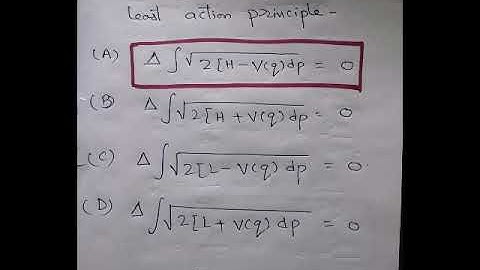 least action principle -
(A) Δ ∫ √2[H-V(q)dp = 0
(B) Δ ∫ √2[H + V(q)dp = 0
(C) Δ ∫ √2[L - V(q) dp = 0.
(D) Δ ∫ √2[L + V(q) dp = 0